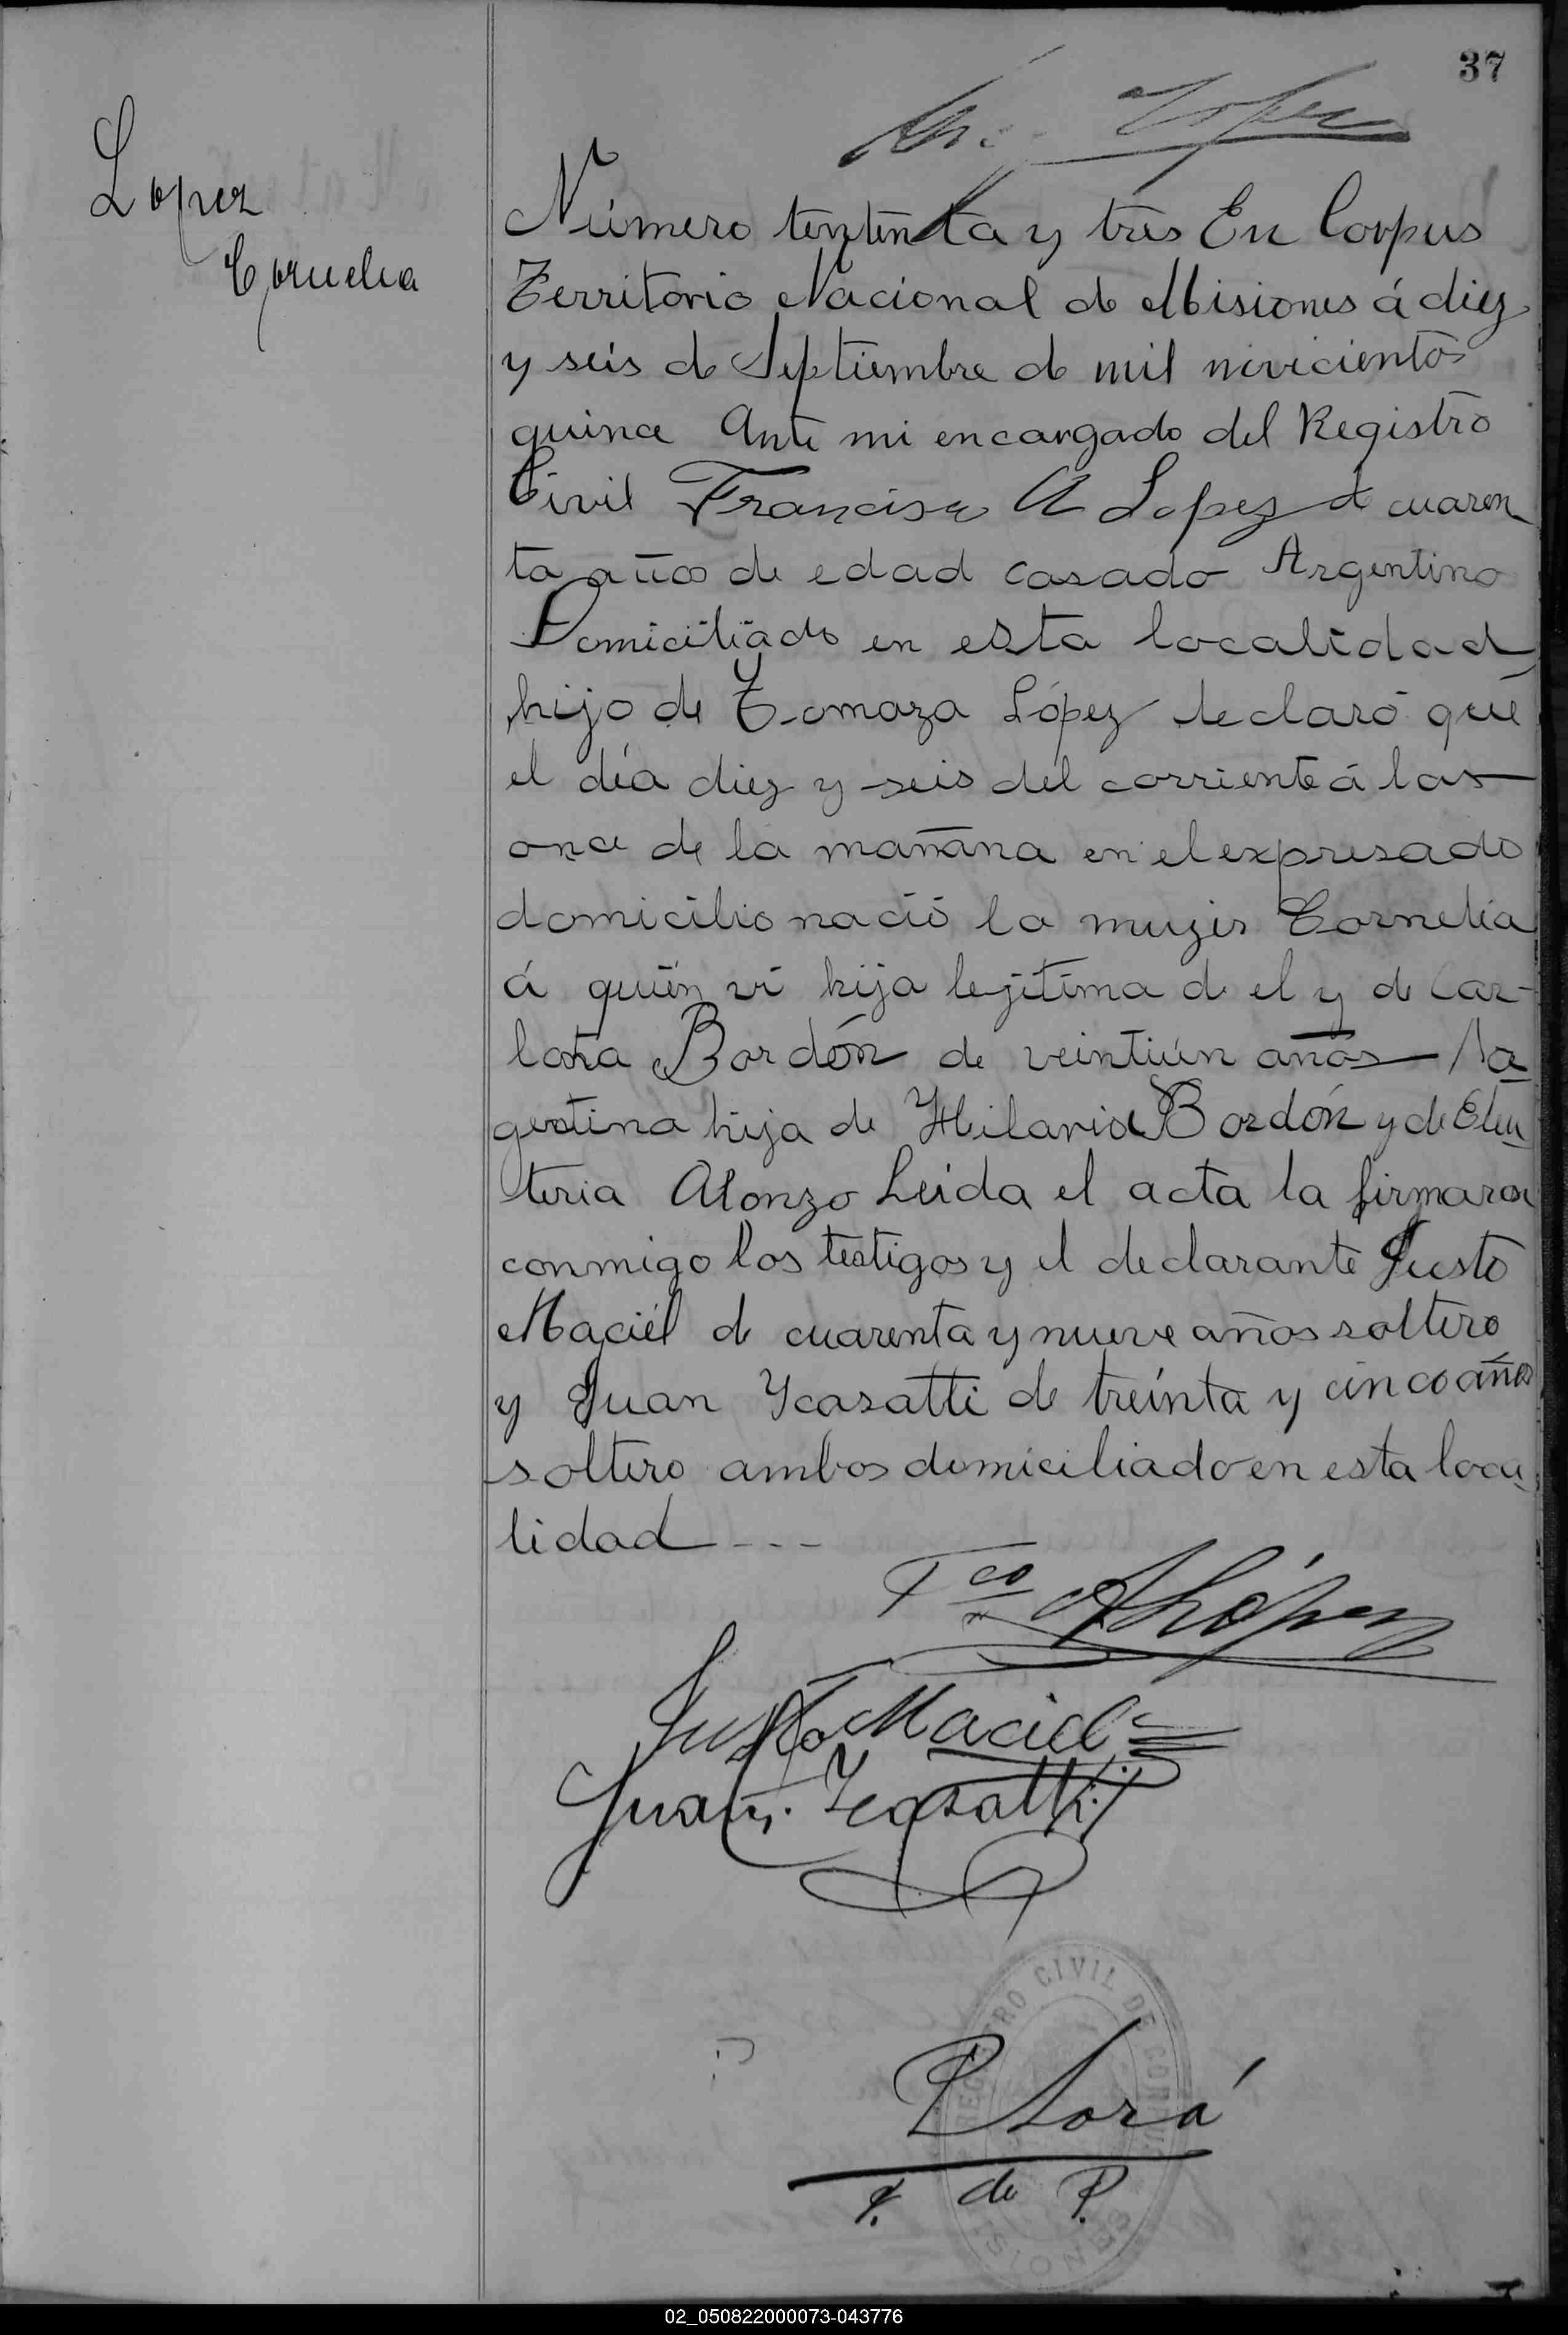 37
Lopez
Cornelia
Lopez
Número tententa y tres En Corpus
Territorio Nacional de Misiones á diez
y seis de Septiembre de mil novicientos
quince Ante mi encargado del Registro
Civil Francisco A Lopez de cuaren
ta años de edad casado Argentino
Domiciliado en esta localidad
hijo de Tomaza López declaró que
el día diez y seis del corriente á las
once de la mañana en el expresado
domicilio nació la mujer Cornelia
á quién vi hija lejitima de el y de Car-
lota Bordón de veintiún años
gentina hija de Hilario Bordón y de Eleu
teria Alonzo Leida el acta la firmaron
conmigo los testigos y el declarante Justo
Maciél de cuarenta y nueve años soltero
y Juan Ycasatti de treinta y cinco años
soltero ambos domiciliado en esta loca
lidad ---
Fco A López
Justo Maciel
Juan. Ycasatti
REGISTRO CIVIL DE CORPUS
MISIONES
P Sorá
J. de P.
02_050822000073-043776